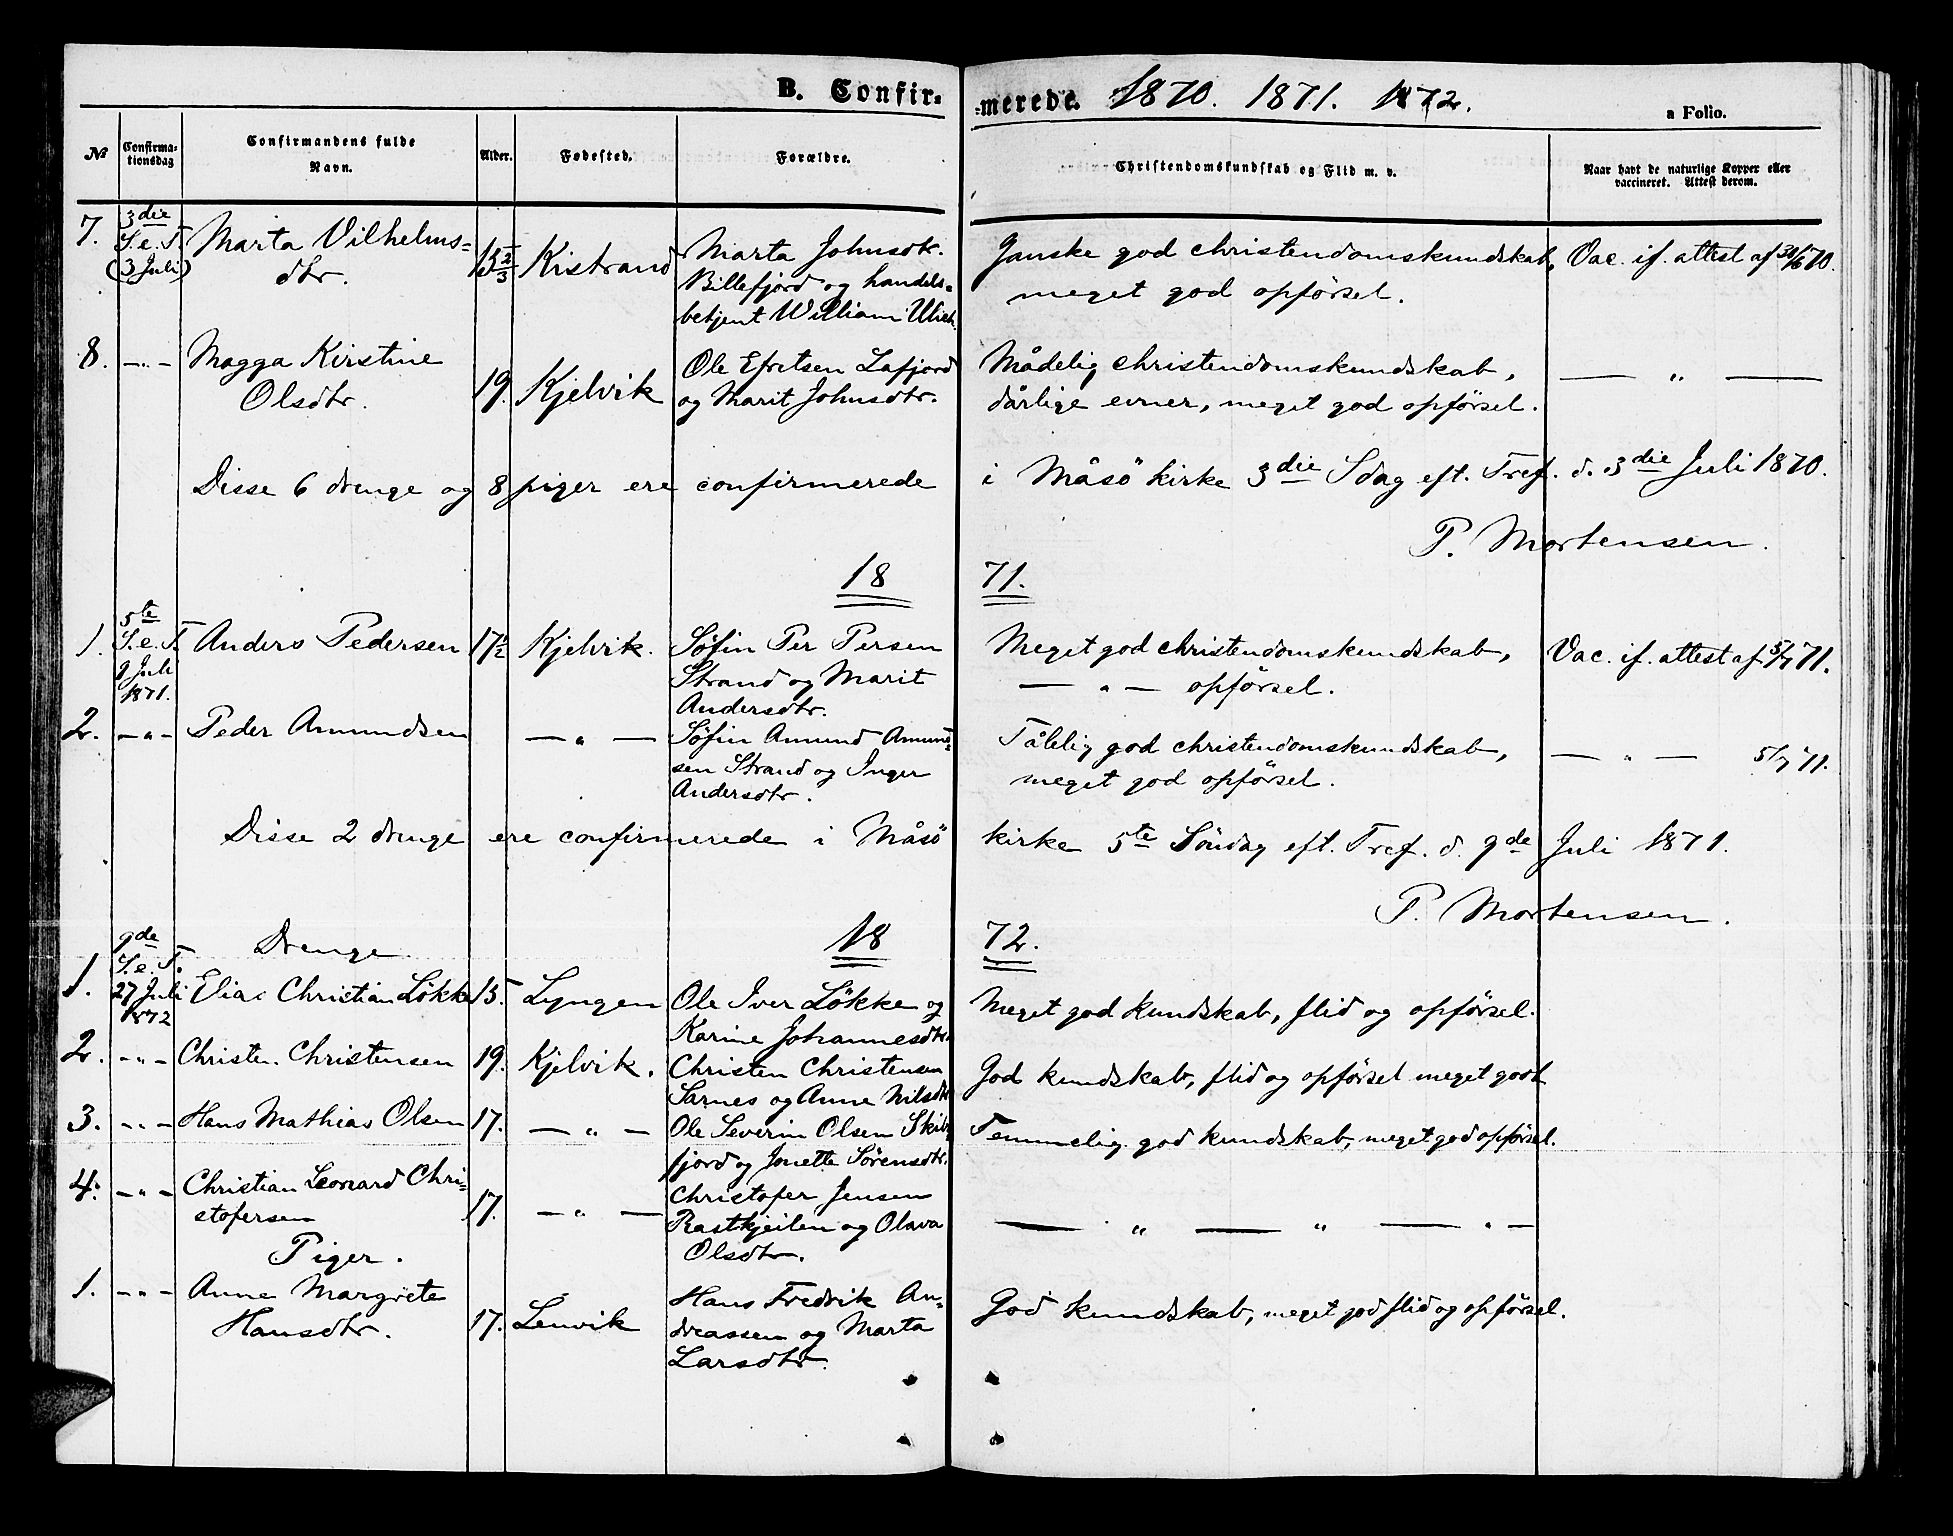 B. Confir-merede. 1870. 1871. 1872.
a Folio.
№ Confirma-tionsdag Confirmandens fulde Navn. Alder. Fødested. Forældre. Christendomskundskab og Flid m. v. Naar havt de naturlige Kopper eller vaccineret. Attest derom.
7. 3die S. e. T. (3 Juli) Marta Vilhelms=
dtr.
15 2/3 Kistrand
Marta Johnsdtr.
Billefjord og handels=
betjent William Ulich.
Ganske god christendomskundskab,
meget god opförsel.
Vac. if. attest af 30/6 70.
8. -„- Magga Kirstine
Olsdtr.
19. Kjelvik
Ole Efretsen Lafjord
og Marit Johnsdtr.
Mådelig christendomskundskab,
dårlige evner, meget god opförsel.
— „ —
Disse 6 drenge og 8 piger ere confirmerede i Måsö kirke 3die Sdag eft. Tref. d. 3die Juli 1870.
P. Mortensen.
1871.
1. 5te S. e. T. 9 Juli 1871. Anders Pedersen 17 1/2 Kjelvik.
Söfin Per Persen
Strand og Marit
Andersdtr.
Meget god christendomskundskab,
— „ — opförsel.
Vac. if. attest af 5/7 71.
2. -„- Peder Amundsen — „ —
Söfin Amund Amund=
sen Strand og Inger
Andersdtr.
Tålelig god christendomskundskab,
meget god opförsel.
— „ — 5/7 71.
Disse 2 drenge ere confirmerede i Måsö kirke 5te Söndag eft. Tref. d. 9de Juli 1871.
P. Mortensen.
1872.
Drenge
1. 9de S. e. T. 27 Juli 1872 Elias Christian Lökke 15. Lyngen
Ole Iver Lökke og
Karine Johannesdtr.
Meget god kundskab, flid og opförsel.
2. -„- Christen Christensen 19. Kjelvik.
Christen Christensen
Sarnes og Anne Nilsdtr
God kundskab, flid og opförsel meget godt
3. -„- Hans Mathias Olsen 17. — „ —
Ole Severin Olsen Skib=
fjord og Jonette Sörensdtr.
Temmelig god kundskab, meget god opförsel.
4. -„- Christian Leonard Chri=
stofersen
17. — „ —
Christofer Jensen
Rastkjeilen og Olava
Olsdtr.
— „ — „ — „ —
Piger.
1. -„- Anne Margrete
Hansdtr.
17. Lenvik
Hans Fredrik An=
dreassen og Marta
Larsdtr.
God kundskab, meget god flid og opförsel.